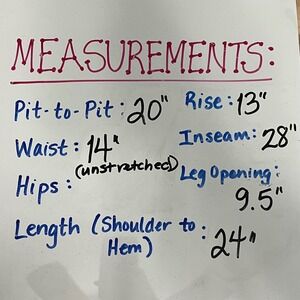 MEASUREMENTS:
Pit-to-Pit: 20"
Rise: 13"
Waist: 14"
(unstretched)
Inseam: 28"
Hips:
Leg Opening:
9.5"
Length (Shoulder to
Hem) : 24"